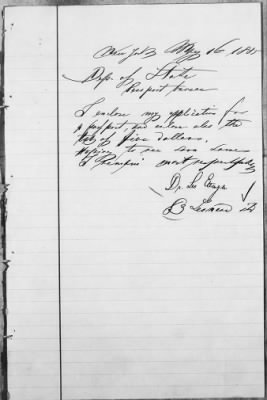 New York May 16 1895
Dep. of State
Passport Bureau
I enclose my application for
a passport and enclose also the
fee of five dollars.
Hoping to see soon same
I remain most respectfully
Dr.